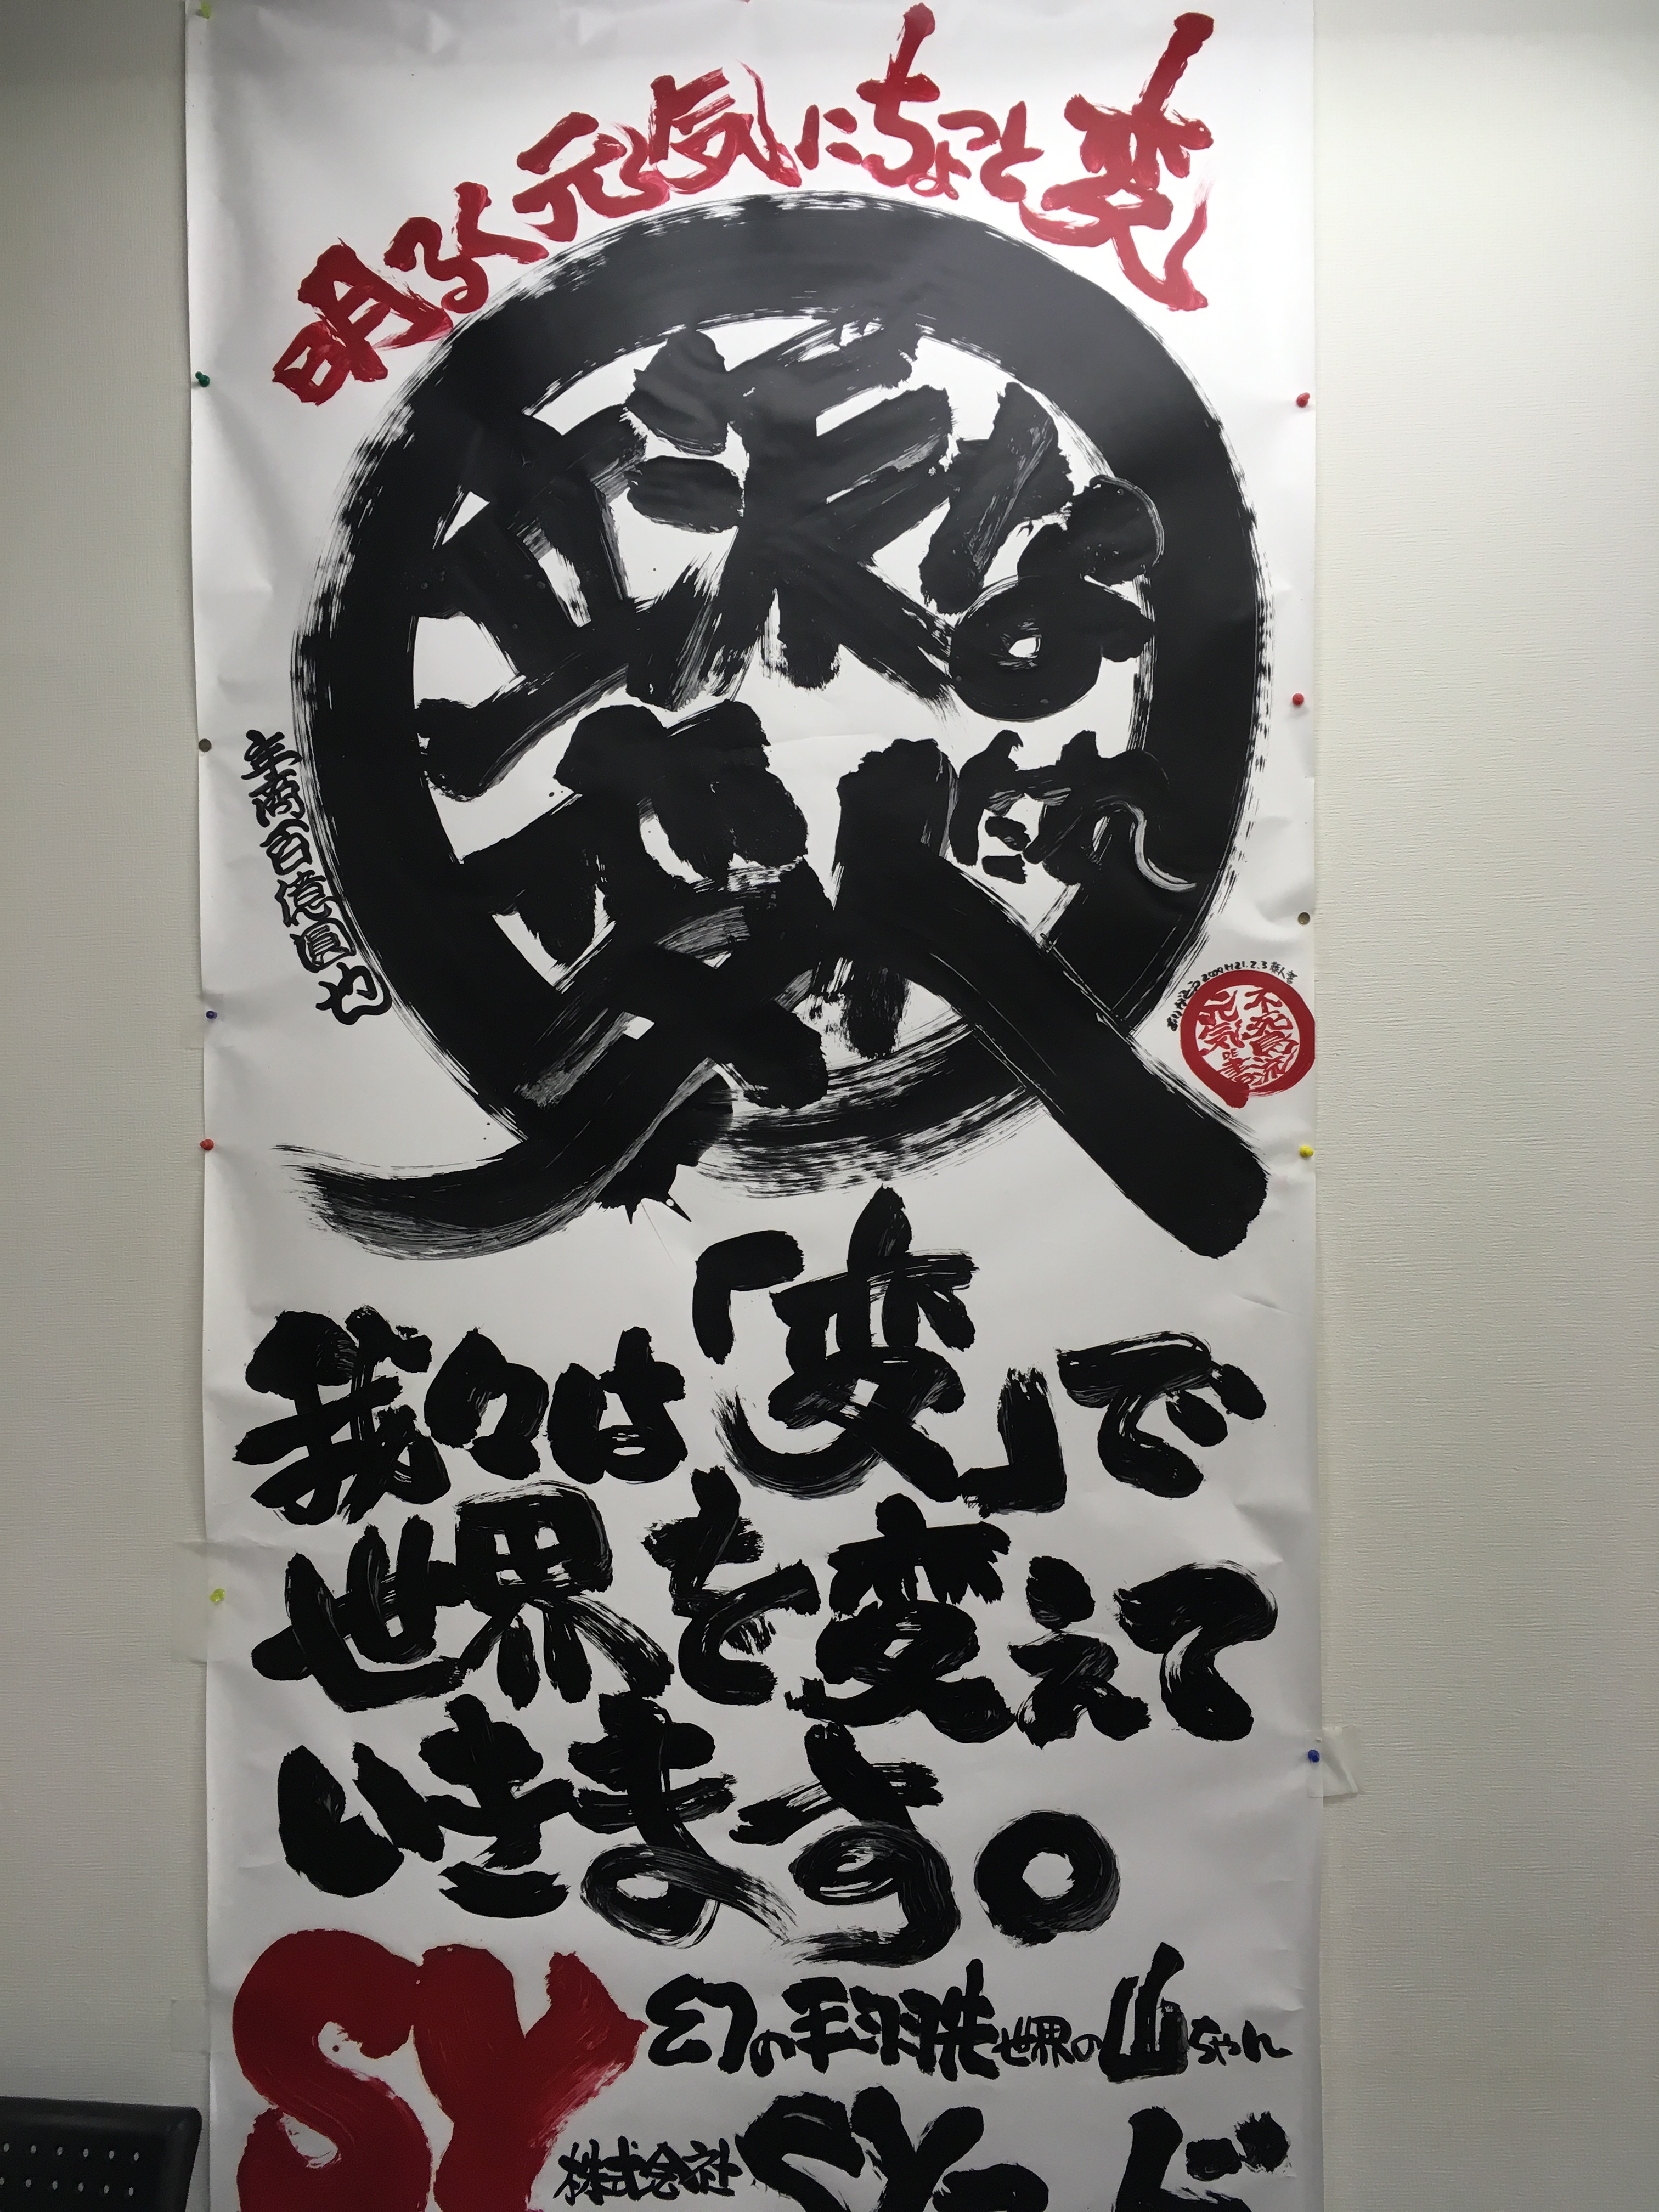 明るく元気にちょっと変
立派な
変人たれ
年商百億圓也
我々は「変」で
世界を変えて
いきます。
SY
幻の手羽先 世界の山ちゃん
株式会社